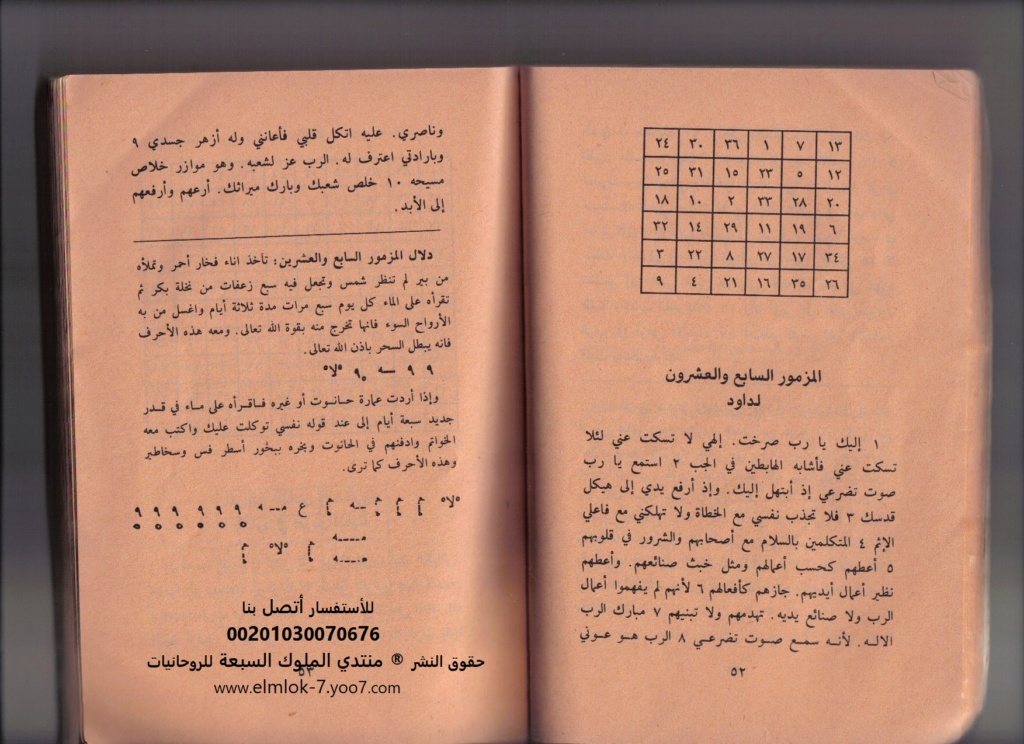 ٢٤ ٣٠ ٣٦ ١ ٧ ١٣
٢٥ ٣١ ١٥ ٢٣ ٥ ١٢
١٨ ١٠ ٢ ٣٣ ٢٨ ٢٠
٣٢ ١٤ ٢٩ ١١ ١٩ ٦
٣ ٢٢ ٨ ٢٧ ١٧ ٣٤
٩ ٤ ٢١ ١٦ ٣٥ ٢٦
المزمور السابع والعشرون
لداود
١ إليك يا رب صرخت. إلهي لا تسكت عني لئلا
تسكت عني فأشابه الهابطين في الجب ٢ استمع يا رب
صوت تضرعي إذ أبتهل إليك. وإذ أرفع يدي إلى هيكل
قدسك ٣ فلا تجذب نفسي مع الخطاة ولا تهلكني مع فاعلي
الإثم ٤ المتكلمين بالسلام مع أصحابهم والشرور في قلوبهم
٥ أعطهم كحسب أعمالهم ومثل خبث صنائعهم. وأعطهم
نظير أعمال أيديهم. جازهم كأفعالهم ٦ لأنهم لم يفهموا أعمال
الرب ولا صنائع يديه. تهدمهم ولا تبنيهم ٧ مبارك الرب
الاله. لأنه سمع صوت تضرعي ٨ الرب هو عوني
٥٢
وناصري. عليه اتكل قلبي فأعانني وله أزهر جسدي ٩
وبارادتي اعترف له. الرب عز لشعبه. وهو موازر خلاص
مسيحه ١٠ خلص شعبك وبارك ميراثك. أرعهم وأرفعهم
إلى الأبد.
دلال المزمور السابع والعشرين: تأخذ اناء فخار أحمر وتملأه
من بير لم تنظر شمس وتجعل فيه سبع زعفات من نخلة بكر ثم
تقرأه على الماء كل يوم سبع مرات مدة ثلاثة أيام واغسل من به
الأرواح السوء فانها تخرج منه بقوة الله تعالى. ومعه هذه الأحرف
فانه يبطل السحر باذن الله تعالى.
وإذا أردت عمارة حانوت أو غيره فاقرأه على ماء في قدر
جديد سبعة أيام إلى عند قوله نفسي توكلت عليك واكتب معه
الخواتم وادفنهم في الحانوت وبخره ببخور أسطر فس وسخاطير
وهذه الأحرف كما ترى.
للأستفسار أتصل بنا
00201030070676
حقوق النشر ® منتدي الملوك السبعة للروحانيات
www.elmlok-7.yoo7.com